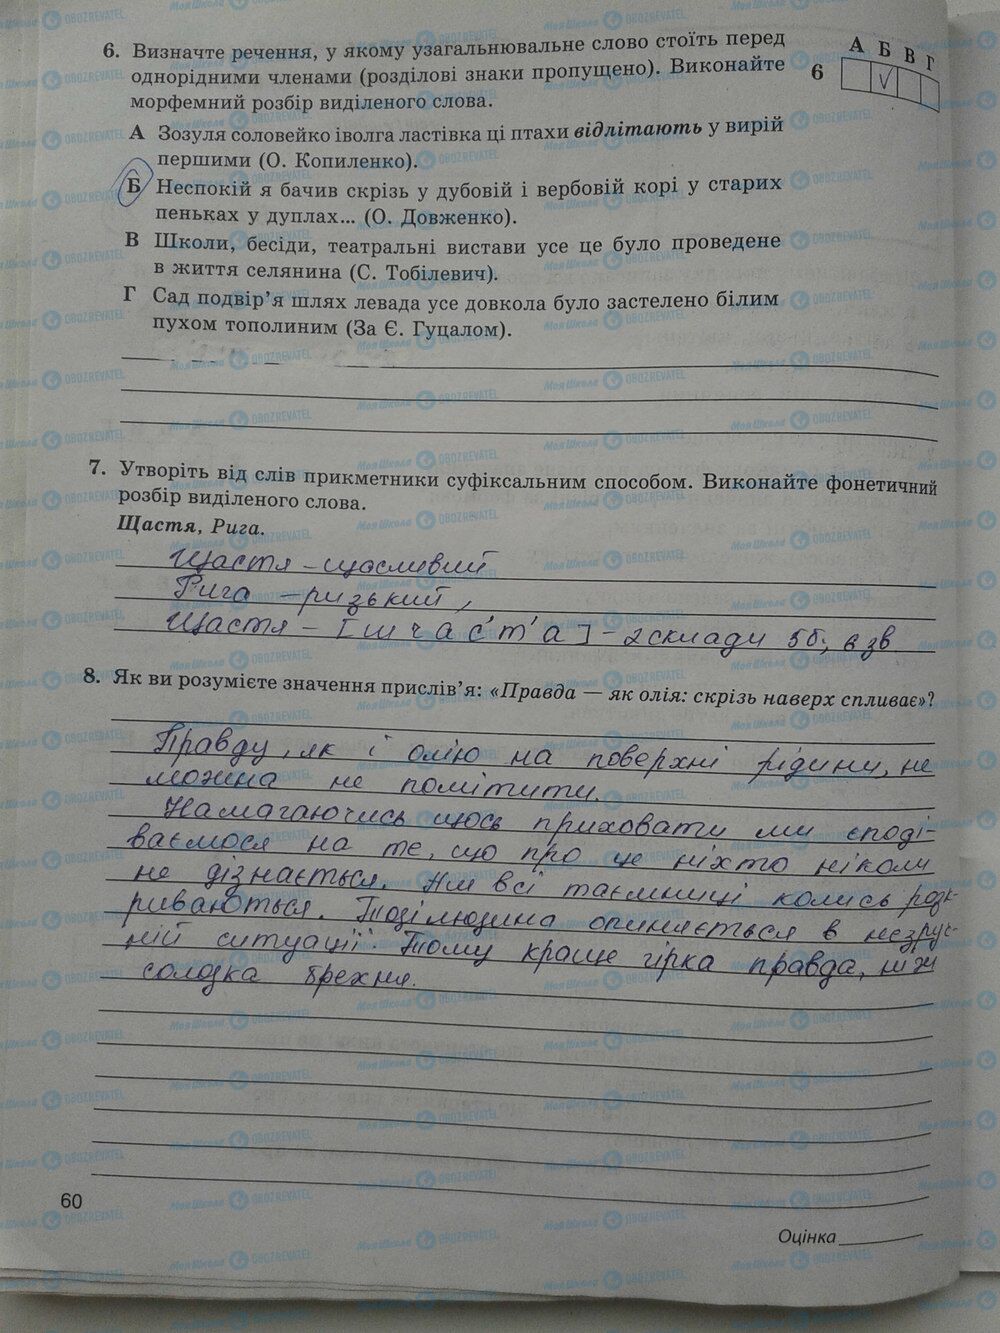 6. Визначте речення, у якому узагальнювальне слово стоїть перед
однорідними членами (розділові знаки пропущено). Виконайте
морфемний розбір виділеного слова.
6 А Б В Г
А Зозуля соловейко іволга ластівка ці птахи відлітають у вирій
першими (О. Копиленко).
Б Неспокій я бачив скрізь у дубовій і вербовій корі у старих
пеньках у дуплах... (О. Довженко).
В Школи, бесіди, театральні вистави усе це було проведене
в життя селянина (С. Тобілевич).
Г Сад подвір'я шлях левада усе довкола було застелено білим
пухом тополиним (За Є. Гуцалом).
7. Утворіть від слів прикметники суфіксальним способом. Виконайте фонетичний
розбір виділеного слова.
Щастя, Рига.
Щастя – щасливий
Рига – ризький,
Щастя – [ш ч а с' т' а] – 2 склади 5б, 6 зв
8. Як ви розумієте значення прислів'я: «Правда — як олія: скрізь наверх спливає»?
Правду, як і олію на поверхні рідини, не
можна не помітити.
Намагаючись щось приховати ми споді-
ваємося на те, що про це ніхто ніколи
не дізнається. Але всі таємниці колись розк-
риваються. Тоді людина опиняється в незруч-
ній ситуації. Тому краще гірка правда, ніж
солодка брехня.
60
Оцінка